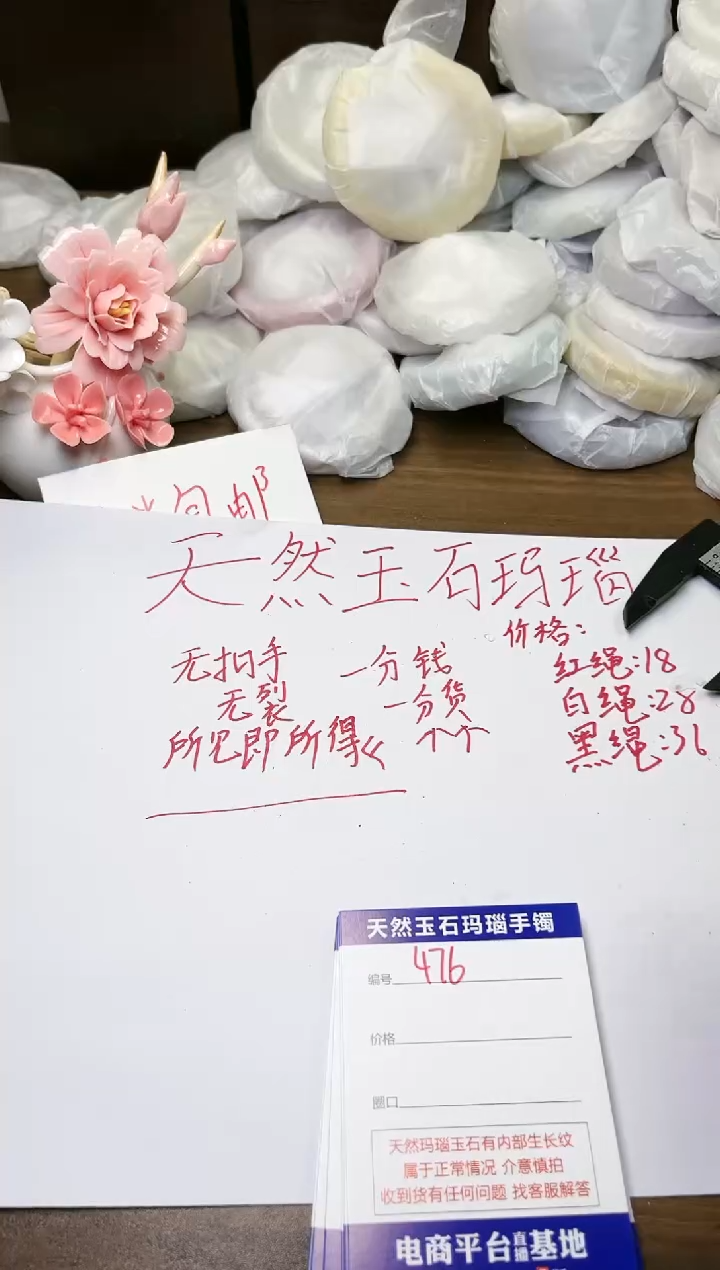 包邮
天然玉石玛瑙
价格:
无扣手 一分钱 红绳:18
无裂 一分货 白绳:28
所见即所得 个个 黑绳:36
天然玉石玛瑙手镯
编号 476
价格
圈口
天然玛瑙玉石有内部生长纹
属于正常情况 介意慎拍
收到货有任何问题 找客服解答
电商平台直播基地